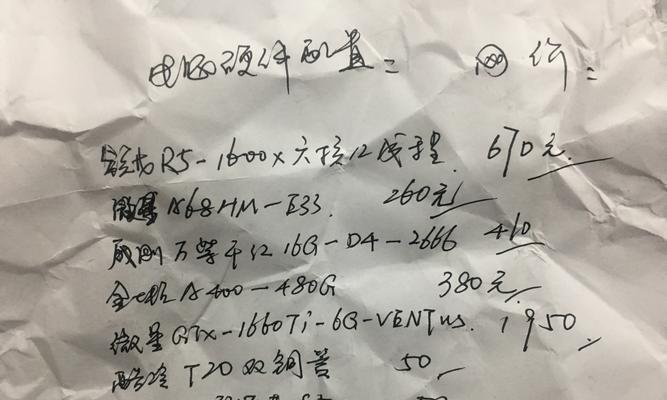 电脑硬件配置: 网价:
锐龙R5-1600X六核12线程. 670元.
微星A68HM-E33. 260元
威刚万紫千红16G-D4-2666 410
金士顿A400-480G 380元
微星GTX-1660Ti-6G-VENTUS. 1950
酷冷T20双铜管 50